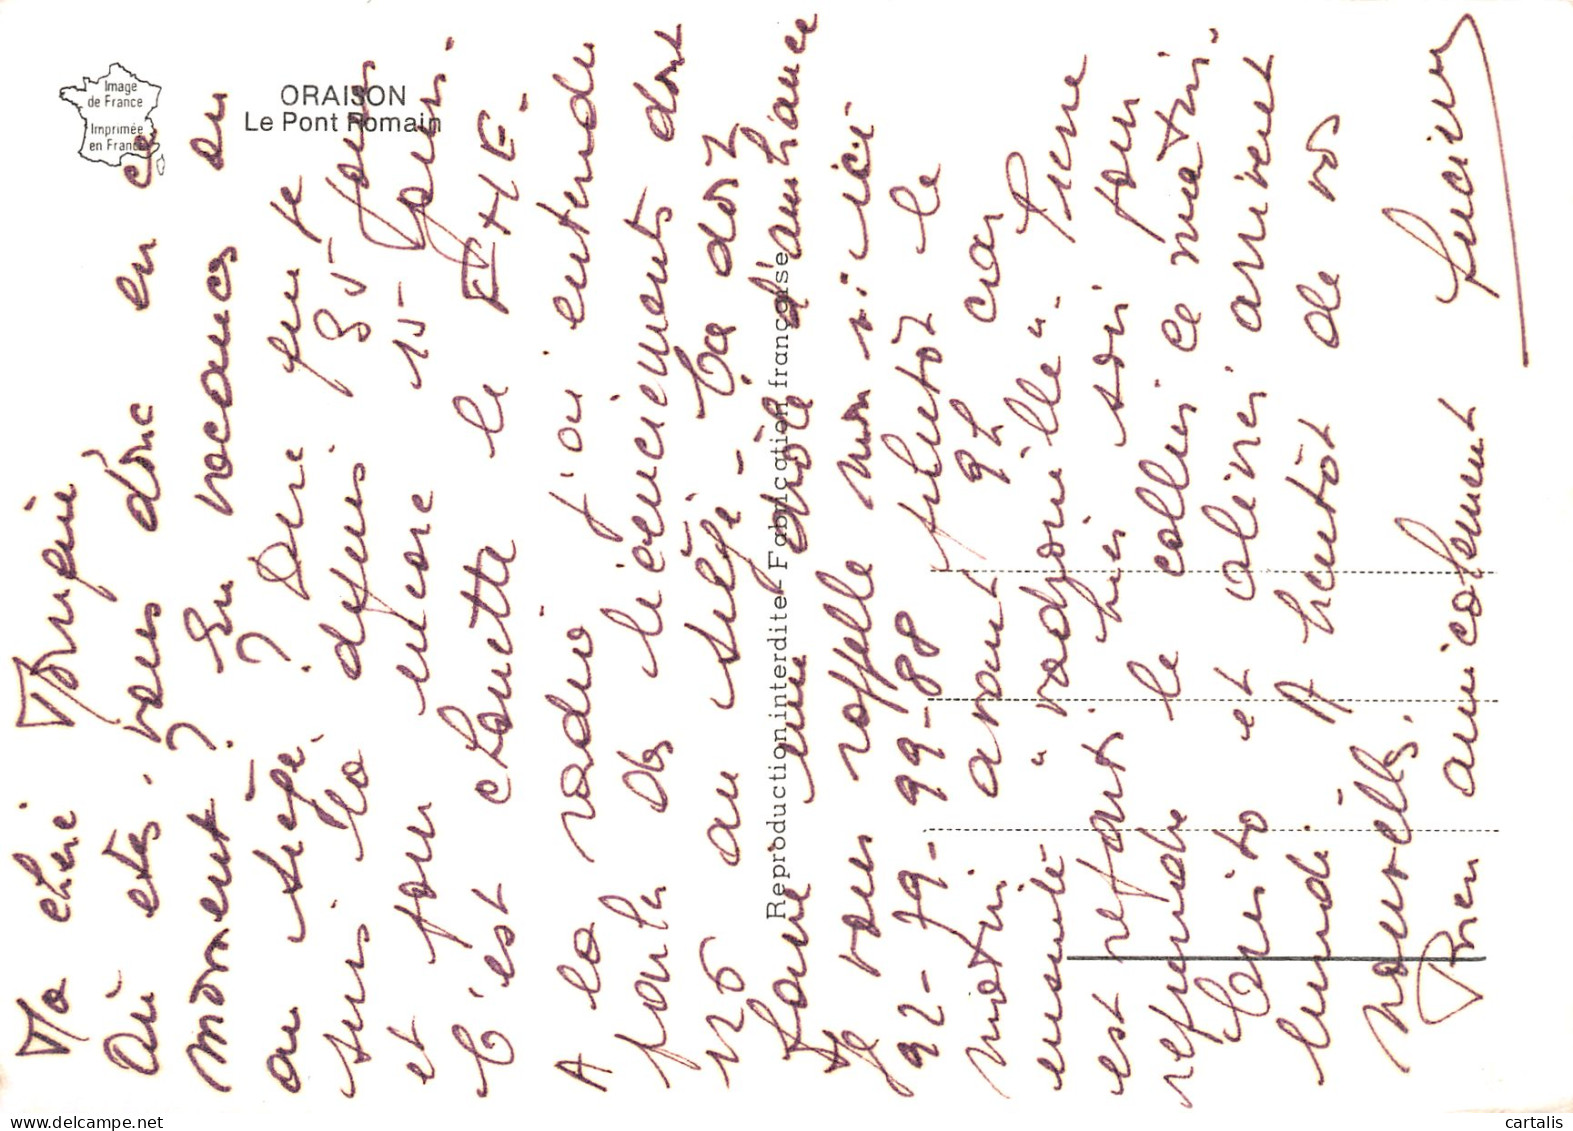 Image
de France
Imprimée
en France
ORAISON
Le Pont Romain
Reproduction interdite - Fabrication française
Ma chère
Où êtes-vous donc en ce
moment ? En vacances ou
au siège ? Dire que je
suis là depuis 85 jours
et pour encore 15 jours.
C'est chouette le
A la radio j'ai entendu
parler des licenciements dont
au siège - Ça doit
faire une drôle d'ambiance
Je vous rappelle mon n° ici
92-79-99-88 plutôt le
matin avant 9h car
ensuite "vadrouille". Pierre
est reparti hier soir pour
reprendre le collier ce matin.
et alines arrivent
lundi. A bientôt de vos
nouvelles.
Bien amicalement
Lucien
cartalis